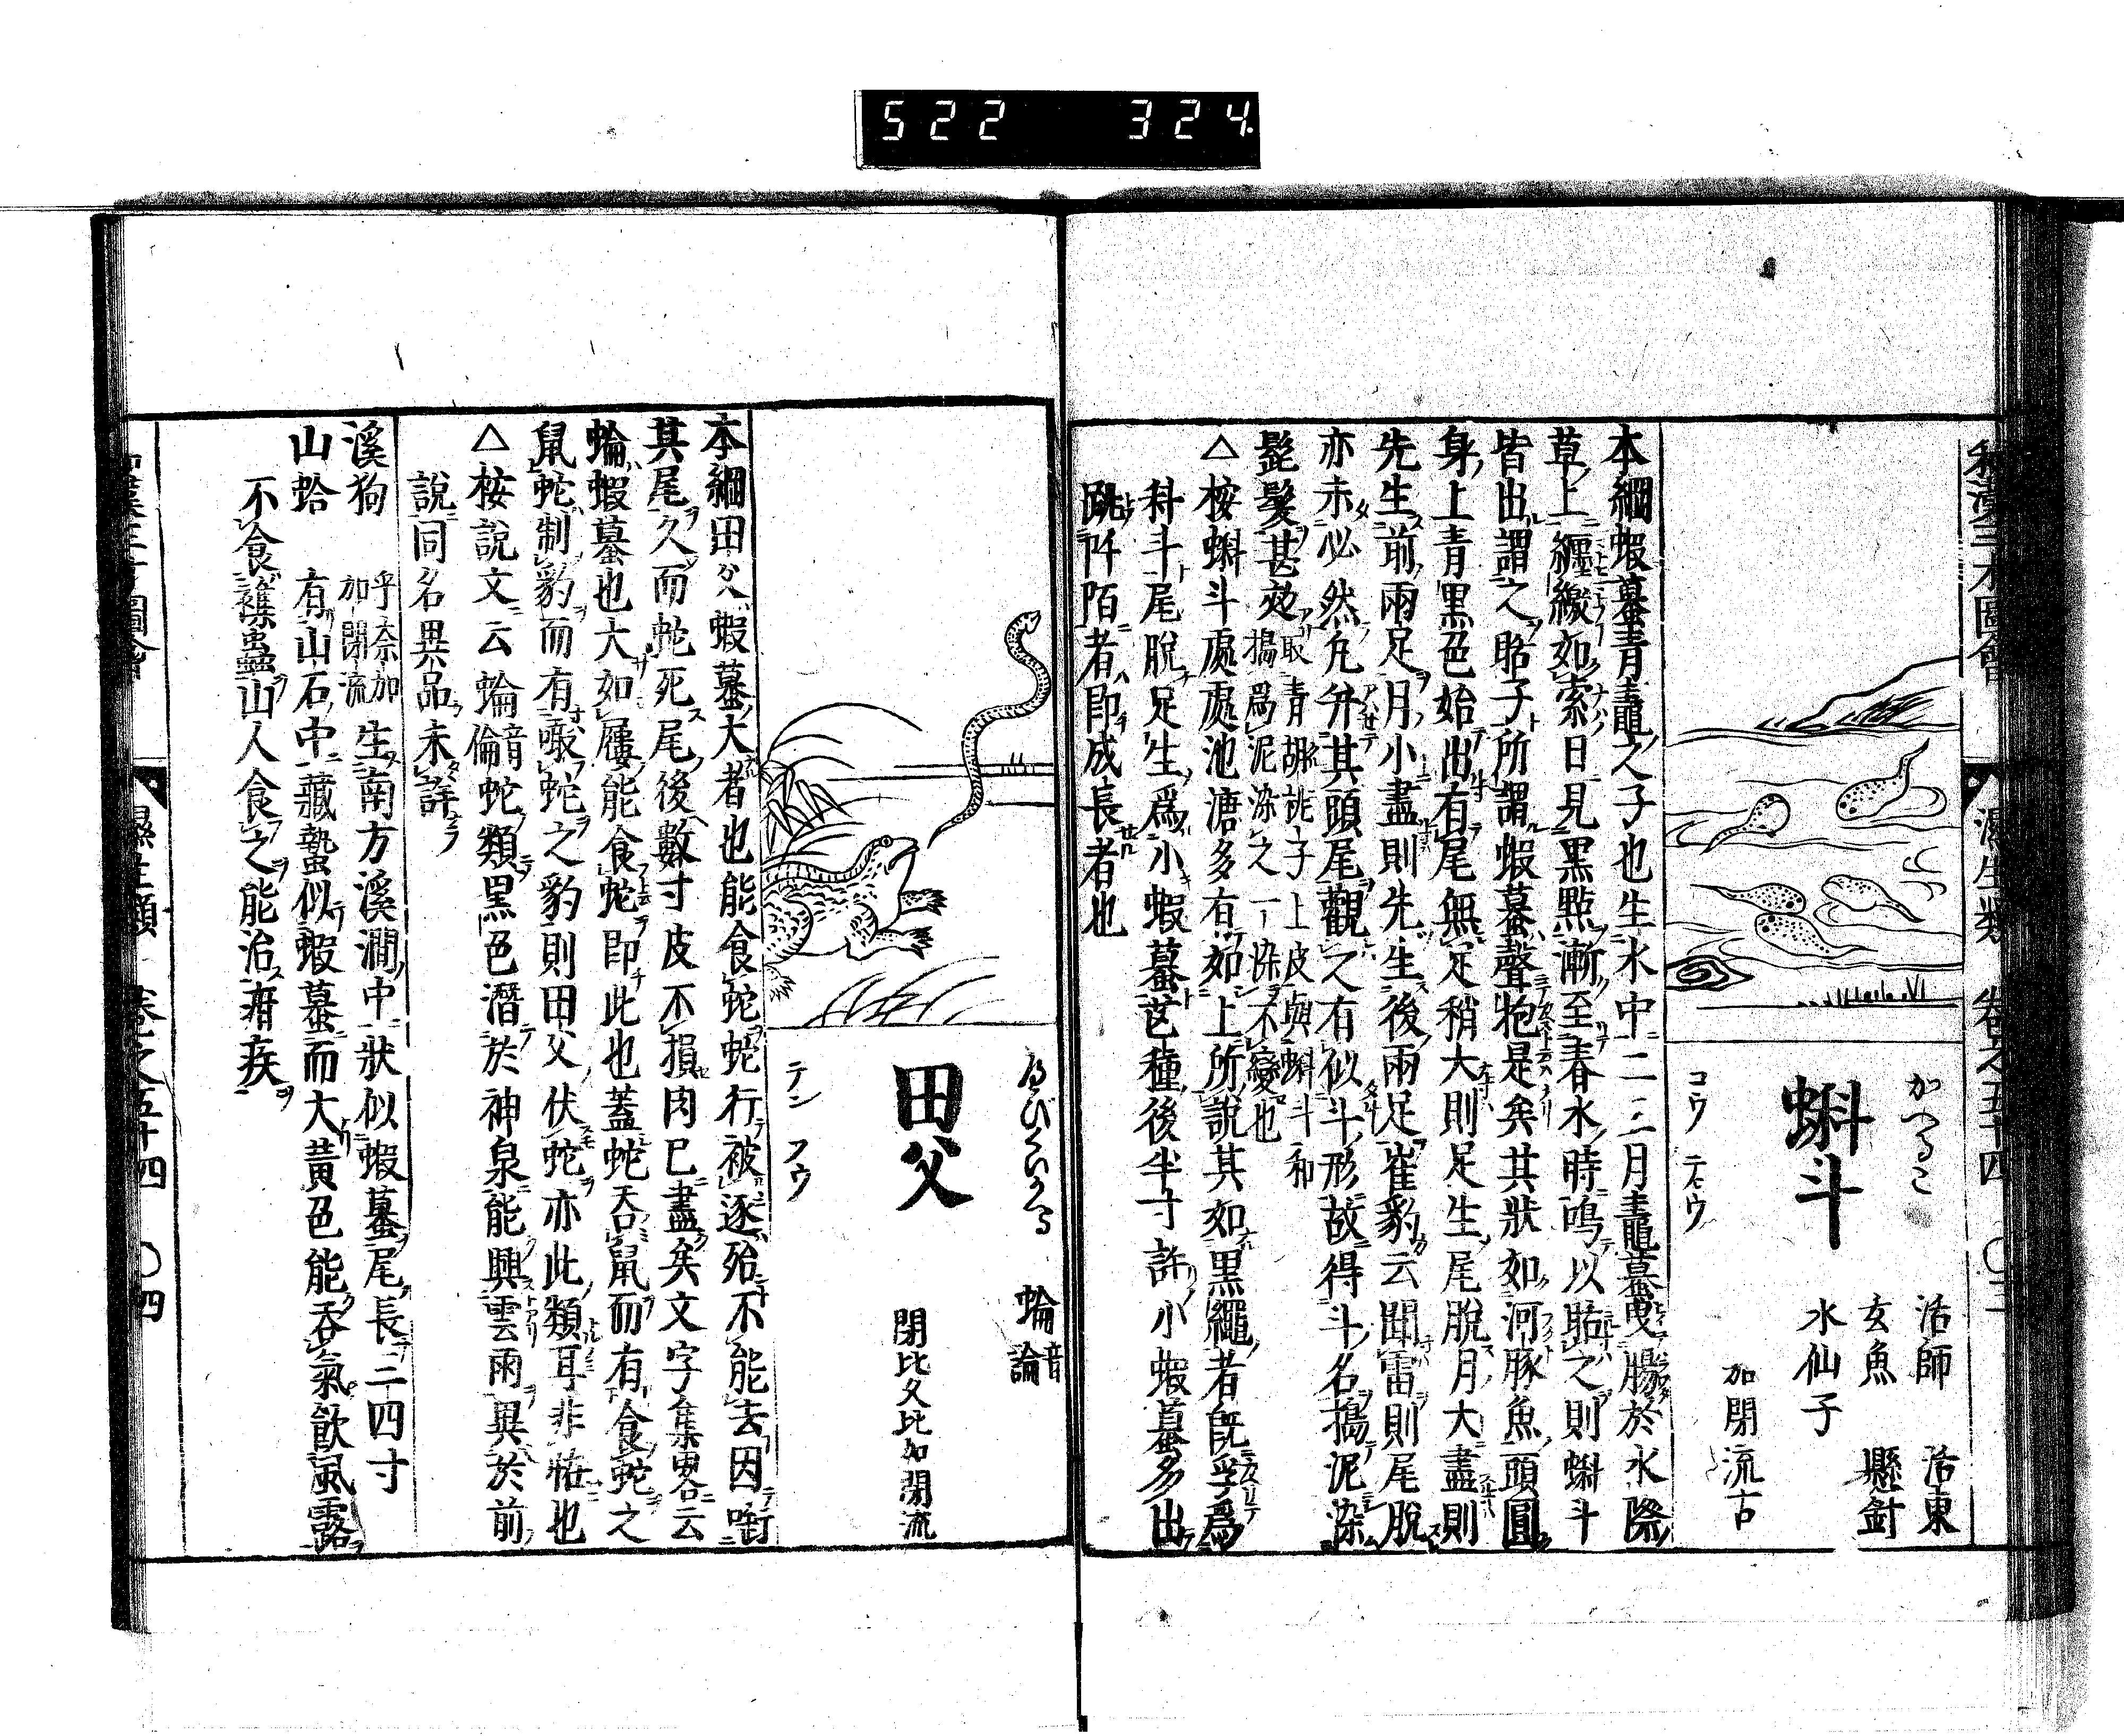 522 324
和漢三才圖會 濕生類 卷之五十四 〇三
かへるこ
蝌斗
コウ テ゚ウ
活師 活東
玄魚 懸針
水仙子
加閉流古
本綱蝦蟇青鼃之子也生水中二三月鼃蟇曳膓於水際
草上纏繳如索日見黒㸃漸至春水時鳴以聒之則蝌斗
皆出謂之聒子所謂蝦蟇聲抱是矣其狀如河豚魚頭圓
身上青黒色始出有尾無足稍大則足生尾脫月大盡則
先生前兩足月小盡則先生後兩足崔豹云聞雷則尾脫
亦未必然凢弁其頭尾觀之有似斗形故得斗名搗泥染
髭髮甚效取青胡桃子上皮與蝌斗和
搗爲泥染之一染不變也
△桉蝌斗處處池溏多有如上所說其如黒繩者旣孚爲
科斗尾脫足生爲小蝦蟇芒種後半寸許小蝦蟇多出
跳阡陌者卽成長者也
田父
テン フウ
蜦音論
閉比久比加閉流
本綱田父蝦蟇大者也能食蛇蛇行被逐殆不能去因啣
其尾久而蛇死尾後數寸皮不損肉已盡矣文字集畧云
蜦蝦蟇也大如屨能食蛇卽此也蓋蛇吞鼠而有食蛇之
鼠蛇制豹而有噉蛇之豹則田父伏蛇亦此類耳非恠也
△桉說文云蜦音倫蛇類黒色潛於神泉能興雲雨異於前
說同名異品未詳
溪狗 乎奈加加閉流 生南方溪澗中狀似蝦蟇尾長三四寸
山蛤 有山石中藏蟄似蝦蟇而大黃色能吞氣飮風露
不食雜蟲山人食之能治疳疾
濕生類 卷之五十四 〇四